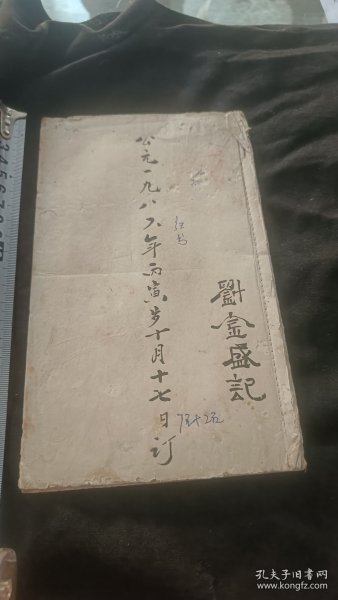 劉金盛記
公元一九八六年丙寅岁十月十七日订
孔夫子旧书网
www.kongfz.com